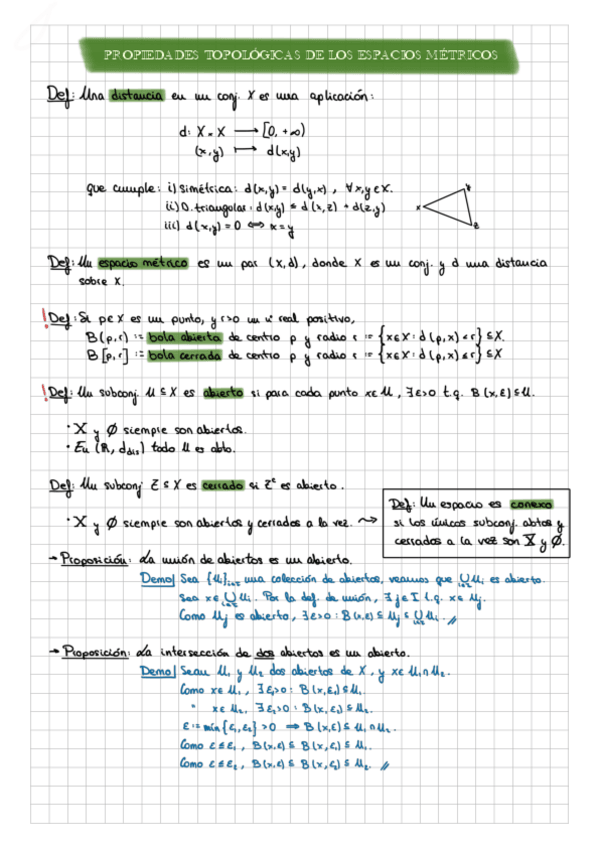 PROPIEDADES TOPOLÓGICAS DE LOS ESPACIOS MÉTRICOS
Def: Una distancia en un conj. X es una aplicación:
d: X × X ⟶ [0, +∞)
(x,y) ⟼ d(x,y)
que cumple: i) Simétrica: d(x,y) = d(y,x), ∀x,y ∈ X.
ii) D. triangular: d(x,y) ≤ d(x,z) + d(z,y)
iii) d(x,y) = 0 ⟺ x = y
x
y
z
Def: Un espacio métrico es un par (X,d), donde X es un conj. y d una distancia
sobre X.
! Def: Si p ∈ X es un punto, y r>0 un nº real positivo,
B(p,r) := bola abierta de centro p y radio r := {x∈X : d(p,x) < r} ⊆ X.
B[p,r] := bola cerrada de centro p y radio r := {x∈X : d(p,x) ≤ r} ⊆ X
! Def: Un subconj. U ⊆ X es abierto si para cada punto x∈U, ∃ε>0 t.q. B(x,ε) ⊆ U.
· X y ∅ siempre son abiertos.
· En (R, d_dis) todo U es abto.
Def: Un subconj Z ⊆ X es cerrado si Zᶜ es abierto.
· X y ∅ siempre son abiertos y cerrados a la vez. ⤳
Def: Un espacio es conexo
si los únicos subconj. abtos y
cerrados a la vez son X y ∅.
→ Proposición: La unión de abiertos es un abierto.
Demo| Sea {Ui}i∈I una colección de abiertos, veamos que ⋃i∈I Ui es abierto.
Sea x ∈ ⋃i∈I Ui. Por la def. de unión, ∃ j∈I t.q. x∈Uj.
Como Uj es abierto, ∃ε>0 : B(x,ε) ⊆ Uj ⊆ ⋃i∈I Ui. //
→ Proposición: La intersección de dos abiertos es un abierto.
Demo| Sean U₁ y U₂ dos abiertos de X, y x∈U₁∩U₂.
Como x∈U₁, ∃ε₁>0 : B(x,ε₁) ⊆ U₁.
" x∈U₂, ∃ε₂>0 : B(x,ε₂) ⊆ U₂.
ε := min{ε₁,ε₂} > 0 ⟹ B(x,ε) ⊆ U₁∩U₂.
Como ε ≤ ε₁, B(x,ε) ⊆ B(x,ε₁) ⊆ U₁.
Como ε ≤ ε₂, B(x,ε) ⊆ B(x,ε₂) ⊆ U₂. //